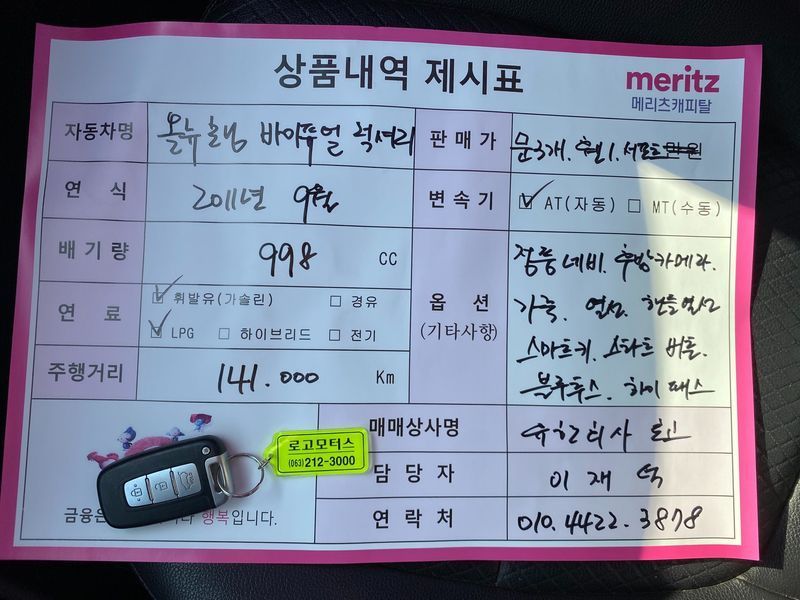 상품내역 제시표
meritz
메리츠캐피탈
자동차명 올뉴모닝 바이퓨얼 럭셔리
판매가 문3개. 휀1. 서포트 만원
연 식 2011년 9월
변속기 AT(자동) MT(수동)
배기량 998 CC
연 료 휘발유(가솔린) 경유
LPG 하이브리드 전기
주행거리 141.000 Km
옵 션
(기타사항)
점등네비. 후방카메라.
가죽. 열선. 핸들열선
스마트키. 스타트 버튼.
블루투스. 하이패스
매매상사명 유한회사 로고
담당자 이재
연락처 010.4422.3878
로고모터스
(063)212-3000
금융은 행복입니다.